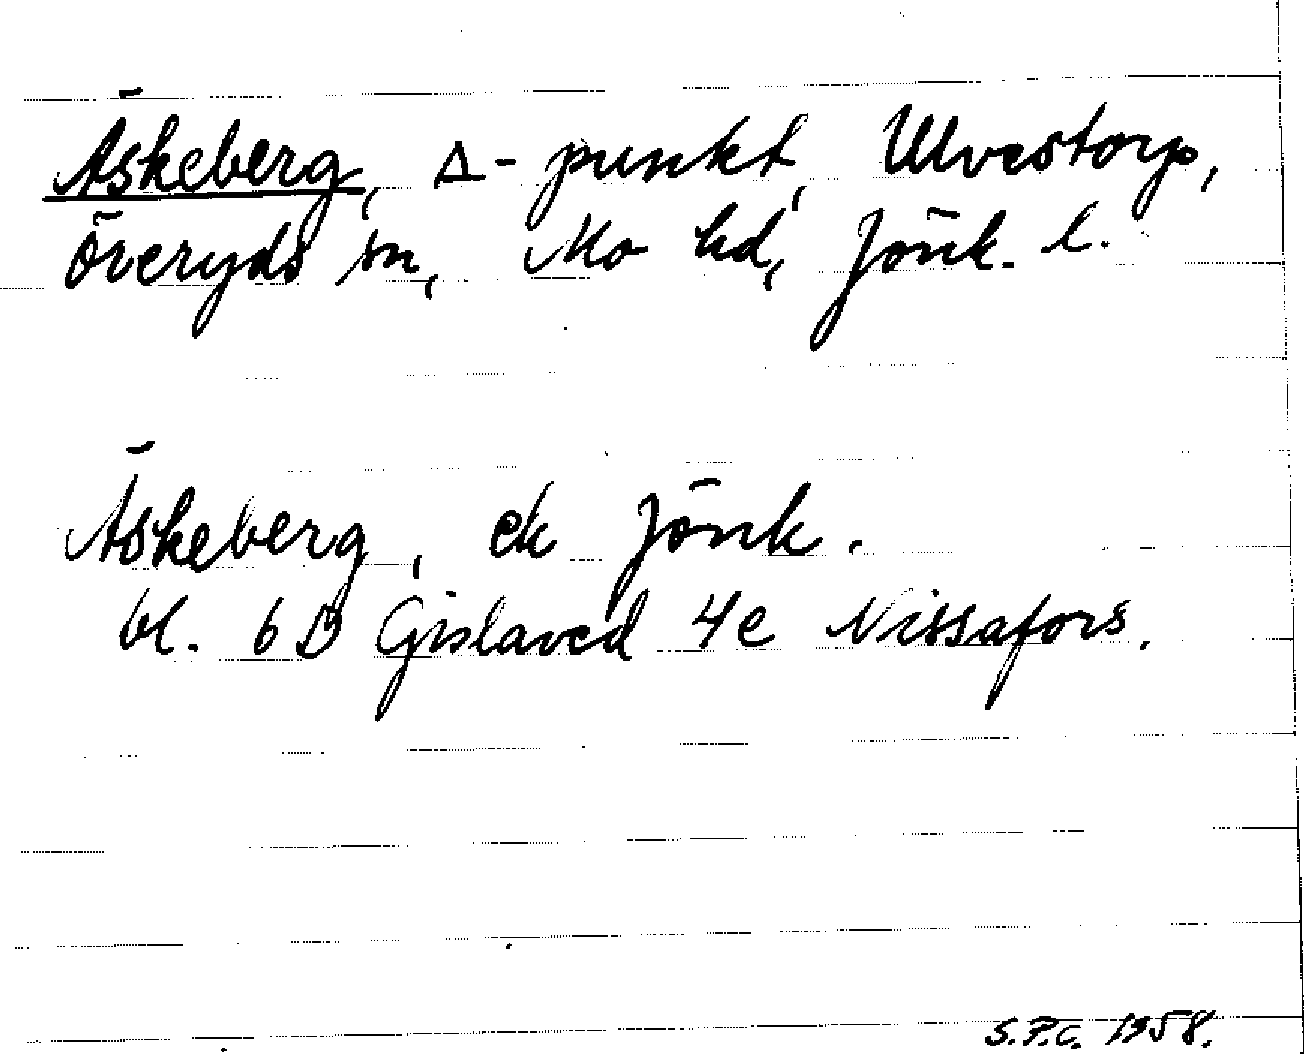 Äskeberg, Δ-punkt, Ulvestorp,
Öreryds sn, Mo hd, Jönk. l.
Äskeberg, ek Jönk.
bl. 6 D Gislaved 4e Nissafors.
S.P.C. 1958.